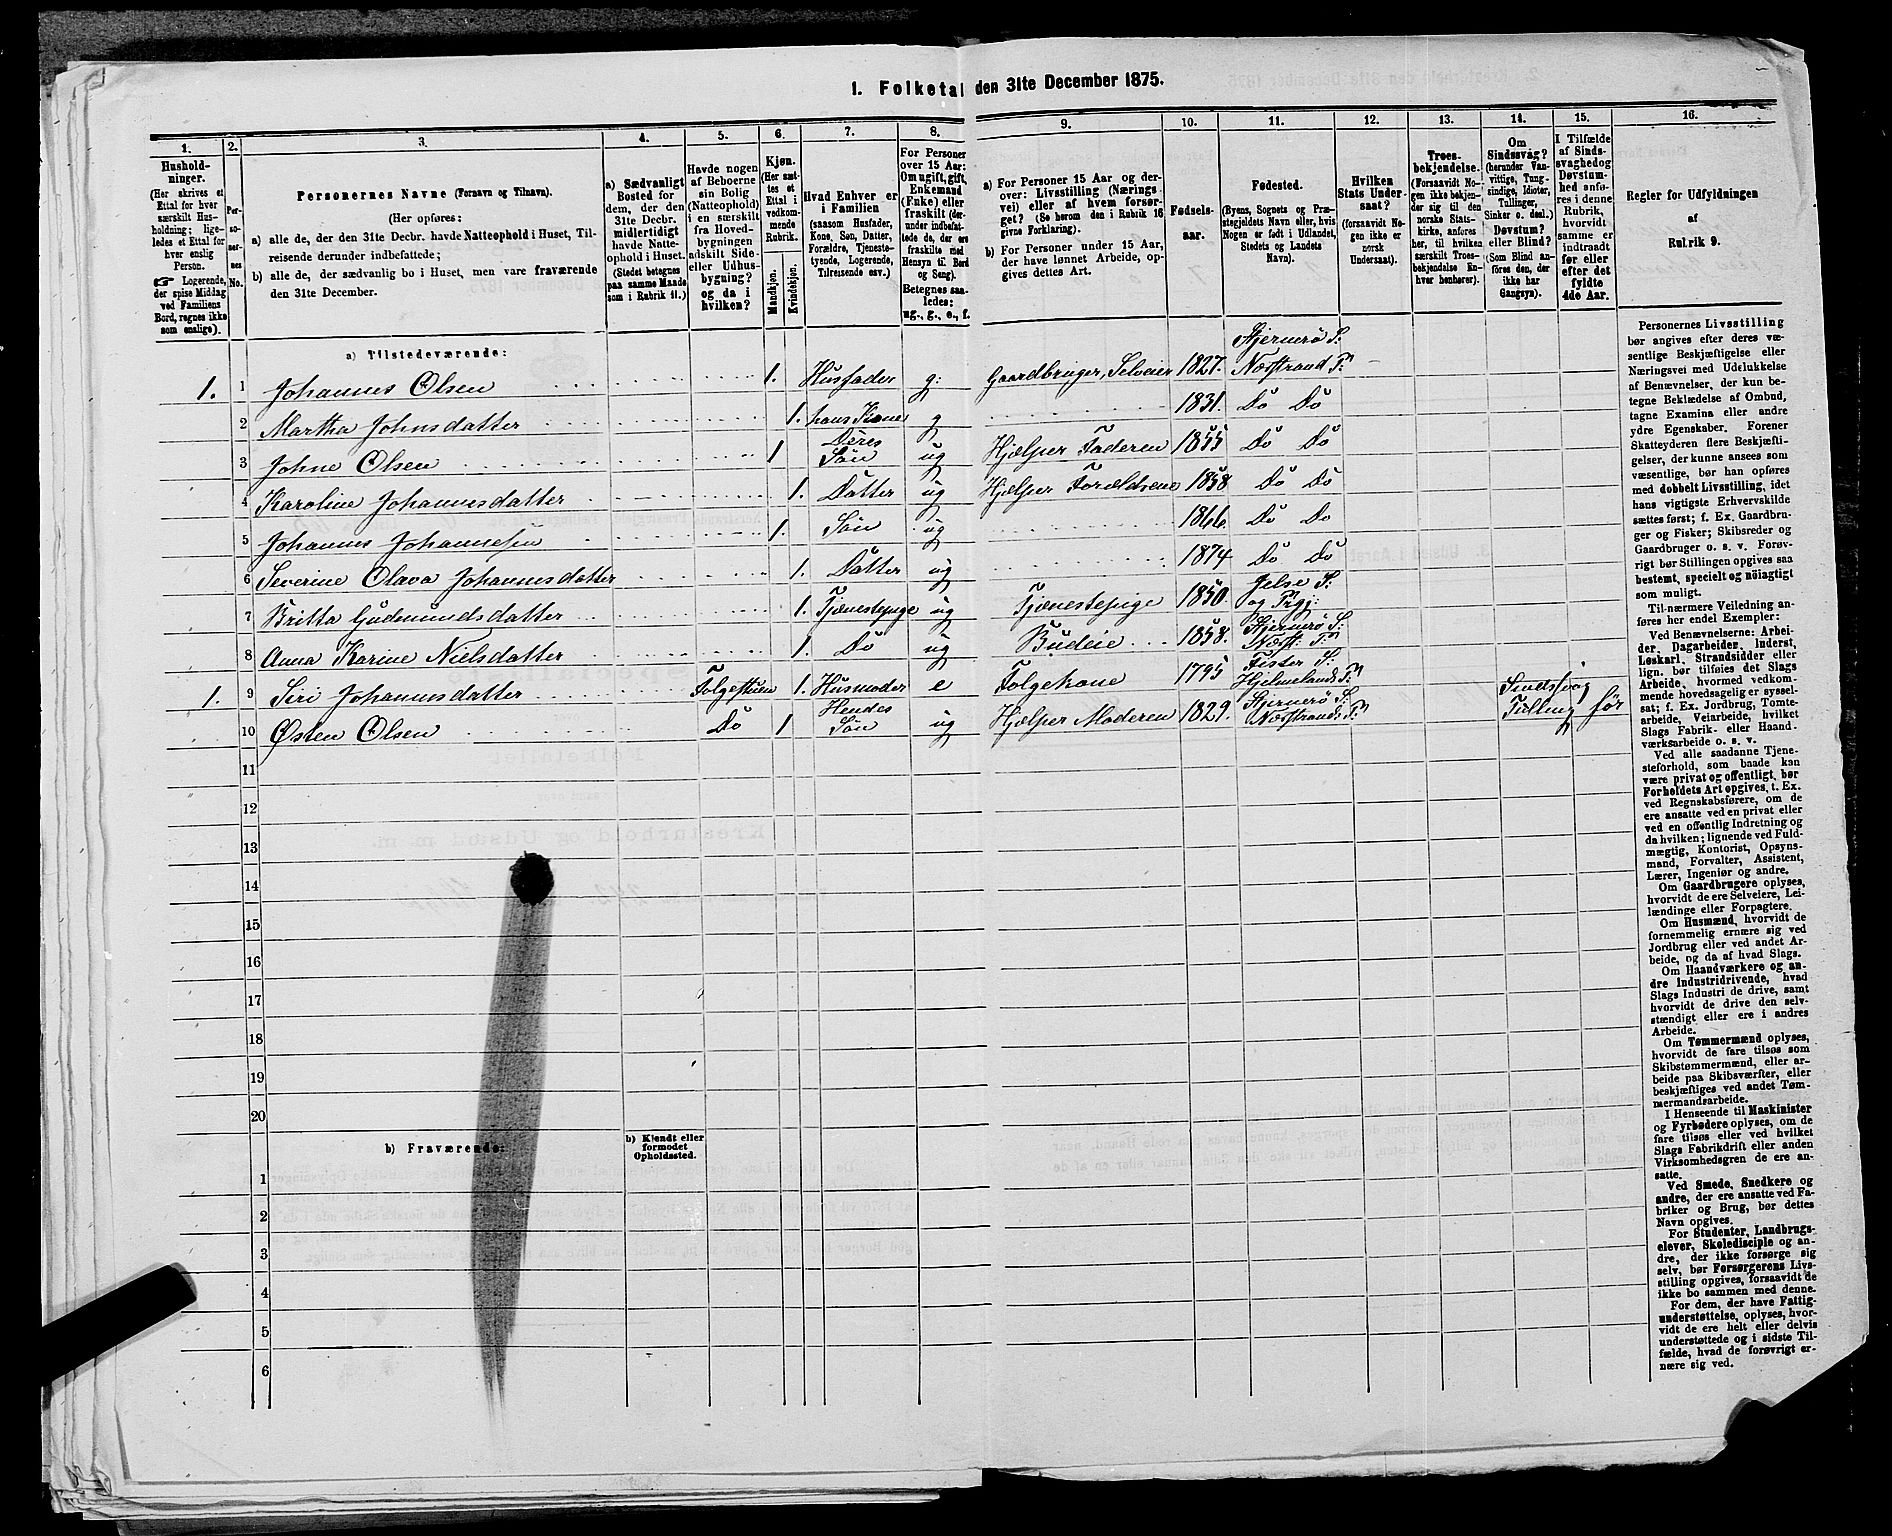 1. Folketal den 31te December 1875.
1. 2. 3. 4. 5. 6. 7. 8. 9. 10. 11. 12. 13. 14. 15. 16.
Hushold-
ninger.
(Her skrives et
Ettal for hver
særskilt Hus-
holdning; lige-
ledes et Ettal for
hver enslig
Person.
☛ Logerende,
der spise Middag
ved Familiens
Bord, regnes ikke
som enslige).
Per-
so-
ner-
nes
No.
Personernes Navne (Fornavn og Tilnavn).
(Her opføres:
a) alle de, der den 31te Decbr. havde Natteophold i Huset, Til-
reisende derunder indbefattede;
b) alle de, der sædvanlig bo i Huset, men vare fraværende
den 31te December.
a) Sædvanligt
Bosted for
dem, der den
31te Decbr.
midlertidigt
havde Natte-
ophold i Huset.
(Stedet betegnes
paa samme Maade
som i Rubrik 11.)
Havde nogen
af Beboerne
sin Bolig
(Natteophold)
i en særskilt
fra Hoved-
bygningen
adskilt Side-
eller Udhus-
bygning?
og da i
hvilken?
Kjøn.
(Her sæt-
tes et
Ettal i
vedkom-
mende
Rubrik.
Mandkjøn.
Kvindekjøn.
Hvad Enhver er
i Familien
(saasom Husfader,
Kone, Søn, Datter,
Forældre, Tjeneste-
tyende, Logerende,
Tilreisende osv.)
For Personer
over 15 Aar:
Om ugift, gift,
Enkemand
(Enke) eller
fraskilt (der-
under indbefat-
tede de, der ere
fraskilte med
Hensyn til Bord
og Seng).
Betegnes saa-
ledes:
ug., g., e., f.
a) For Personer 15 Aar og der-
over: Livsstilling (Nærings-
vei) eller af hvem forsør-
get? (Se herom den i Rubrik 16
givne Forklaring).
b) For Personer under 15 Aar,
der have lønnet Arbeide, op-
gives dettes Art.
Fødsels-
aar.
Fødested.
(Byens, Sognets og Præ-
stegjeldets Navn eller, hvis
Nogen er født i Udlandet,
Stedets og Landets
Navn).
Hvilken
Stats Under-
saat?
(forsaavidt No-
gen ikke er
norsk
Undersaat).
Troes-
bekjendelse.
(Forsaavidt No-
gen ikke bekjen-
der sig til den
norske Stats-
kirke, anføres
her, til hvilken
særskilt Troes-
bekjendelse En-
hver henhører).
Om
Sindssvag?
(herunder Van-
vittige, Tung-
sindige, Idioter,
Tullinger,
Sinker o. desl.)
Døvstum?
eller Blind?
(Som Blind an-
føres den, der
ikke har
Gangsyn).
I Tilfælde
af Sinds-
svaghed og
Døvstum-
hed anfø-
res i denne
Rubrik,
hvorvidt
samme er
indtraadt
før eller
efter det
fyldte
4de Aar.
Regler for Udfyldningen
af
Rubrik 9.
a) Tilstedeværende:
1. 1 Johannes Olsen 1. Husfader g: Gaardbruger, Selveier 1827. Stjernerö S: Næstrand Pr
2 Martha Johnsdatter 1. hans Kone g 1831. Do Do
3 Johne Olsen 1 Deres Sön ug Hjælper Faderen 1855 Do Do
4 Karoline Johannesdatter 1. Datter ug Hjælper Forældrene 1858 Do Do
5 Johannes Johannesen 1. Sön ug 1866. Do Do
6 Severine Olava Johannesdatter 1. Datter ug 1874 Do Do
7 Britta Gudmundsdatter 1. Tjenestepige ug Tjænestepige 1850. Jelse S: og Prgj:
8 Anna Karine Nielsdatter 1. Do ug Budeie 1858. Stjernerö S: Næst: Pr
1. 9 Siri Johannesdatter Folgestuen 1. Husmoder e Folgekone 1795 Fister S: Hjelmelands Pr
10 Østen Olsen Do 1 Hendes Sön ug Hjælper Moderen 1829. Stjernerö S: Næstrands Pr Sindssvag Tulling før
11
12
13
14
15
16
17
18
19
20
b) Fraværende: b) Kjendt eller
formodet
Opholdssted.
1
2
3
4
5
6
Personernes Livsstilling
bør angives efter deres væ-
sentlige Beskjæftigelse eller
Næringsvei med Udelukkelse
af Benævnelser, der kun be-
tegne Beklædelse af Ombud,
tagne Examina eller andre
ydre Egenskaber. Forener
Skatteyderen flere Beskjæfti-
gelser, der kunne ansees som
væsentlige, bør han opføres
med dobbelt Livsstilling, idet
hans vigtigste Erhvervskilde
sættes først; f. Ex. Gaardbru-
ger og Fisker; Skibsreder og
Gaardbruger o. s. v. Forøv-
rigt bør Stillingen opgives saa
bestemt, specielt og nöiagtigt
som muligt.
Til nærmere Veiledning an-
føres her endel Exempler:
Ved Benævnelserne: Arbei-
der, Dagarbeider, Inderst,
Løskarl, Strandsidder eller
lign. bør tilføies det Slags
Arbeide, hvormed vedkom-
mende hovedsagelig er syssel-
sat; f. Ex. Jordbrug, Tomte-
arbeide, Veiarbeide, hvilket
Slags Fabrik- eller Haand-
værksarbeide o. s. v.
Ved alle saadanne Tjene-
steforhold, som baade kan
være privat og offentligt, bør
Forholdets Art opgives, t. Ex.
ved Regnskabsførere, om de
ere ansatte ved en privat eller
ved en offentlig Indretning og
da hvilken; lignende ved Fuld-
mægtig, Kontorist, Opsyns-
mand, Forvalter, Assistent,
Lærer, Ingeniør og andre.
Om Gaardbrugere oplyses,
hvorvidt de ere Selveiere, Lei-
lændinge eller Forpagtere.
Om Husmænd, hvorvidt de
fornemmelig ernære sig ved
Jordbrug eller ved andet Ar-
beide, og da af hvad Slags.
Om Haandværkere og an-
dre industridrivende, hvad
Slags Industri de drive, samt
hvorvidt de drive den selv-
stændigt eller ere i andres
Arbeide.
Om Tømmermænd oplyses,
hvorvidt de fare tilsøs som
Skibstømmermænd, eller ar-
beide paa Skibsværfter, eller
beskjæftiges ved andet Tøm-
mermandsarbeide.
I Henseende til Maskinister
og Fyrbødere oplyses, om de
fare tilsøs eller ved hvilket
Slags Fabrikdrift eller anden
Virksomhedsgren de ere an-
satte.
Ved Smede, Snedkere og
andre, der ere ansatte ved Fa-
briker og Brug, bør dettes
Navn opgives.
For Studenter, Landbrugs-
elever, Skoledisciple og an-
dre, der ikke forsørge sig
selv, bør Forsørgerens Livs-
stilling opgives, forsaavidt de
ikke bo sammen med denne.
For dem, der have Fattig-
understøttelse, oplyses, hvor-
vidt de ere helt eller delvis
understøttede og i sidste Til-
fælde, hvad de forøvrigt er-
nære sig ved.